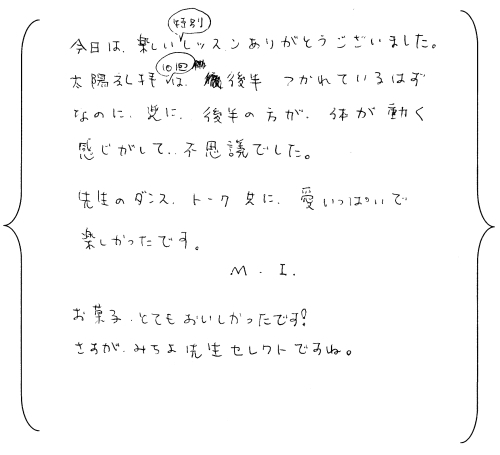 今日は、楽しい特別レッスンありがとうございました。
太陽礼拝10回は、後半 つかれているはず
なのに、逆に、後半の方が、体が動く
感じがして、不思議でした。
先生のダンス、トーク 共に、愛いっぱいで
楽しかったです。
M. I.
お菓子、とてもおいしかったです!
さすが、みちよ先生セレクトですね。